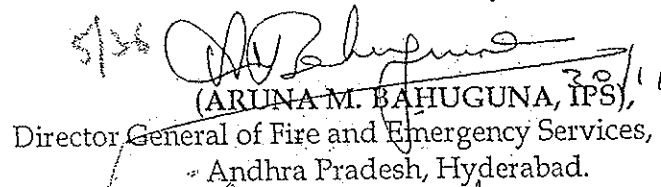 5/36
(ARUNA M. BAHUGUNA, IPS),
Director General of Fire and Emergency Services,
Andhra Pradesh, Hyderabad.